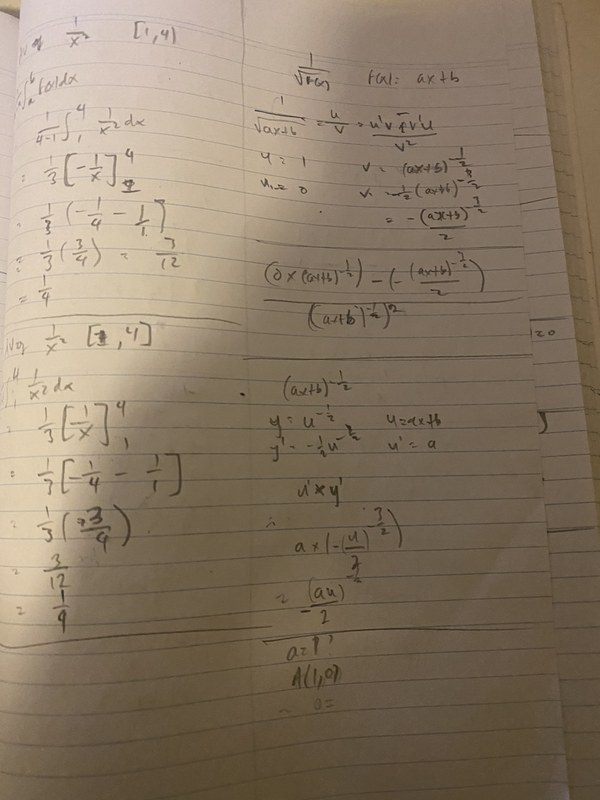 of 1/x² [1,4)
∫ₐᵇ f(x)dx
1/4-1 ∫₁⁴ 1/x² dx
= 1/3 [-1/x]⁴₁
= 1/3 (-1/4 - 1/1]
= 1/3 (3/4) = 3/12
= 1/4
1/x² [1,4]
1/x² dx
= 1/3 [1/x]⁴₁
= 1/3 [-1/4 - 1/1]
= 1/3 (3/4)
= 3/12
= 1/4
1/√f(x) f(x)= ax+b
1/√ax+b = u/v = u'v - v'u/v²
u = 1 v = (ax+b)^-1/2
u' = 0 v' = -1/2 (ax+b)^-3/2
= - (ax+b)^-3/2/2
(0 × (ax+b)^-1/2) - (- (ax+b)^-3/2/2)
((ax+b)^-1/2)²
(ax+b)^-1/2
y = u^-1/2 u = ax+b
y' = -1/2 u^-3/2 u' = a
u' × y'
a × (-(u)^-3/2/2)
= - (au)/2
a = 1
A(1,0)
a=
120